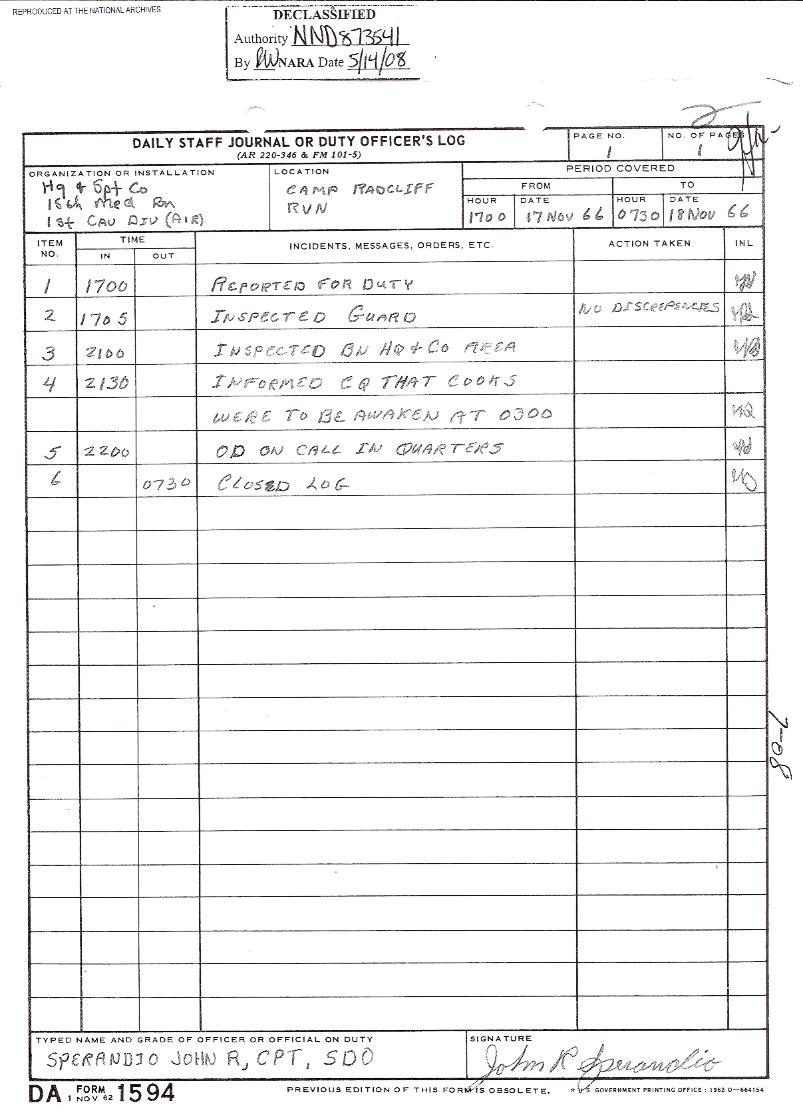 REPRODUCED AT THE NATIONAL ARCHIVES
DECLASSIFIED
Authority NND873541
By NARA Date 5/14/08
DAILY STAFF JOURNAL OR DUTY OFFICER'S LOG
(AR 220-346 & FM 101-5)
PAGE NO.
1
NO. OF PAGES
1
ORGANIZATION OR INSTALLATION
Hq & Spt Co
15th Med Bn
1st CAV DIV (AIR)
LOCATION
CAMP RADCLIFF
RVN
PERIOD COVERED
FROM TO
HOUR DATE HOUR DATE
1700 17 NOV 66 0730 18 NOV 66
ITEM NO. TIME INCIDENTS, MESSAGES, ORDERS, ETC. ACTION TAKEN INL
IN OUT
1 1700 REPORTED FOR DUTY
2 1705 INSPECTED GUARD NO DISCREPENCIES
3 2100 INSPECTED BN HQ & CO AREA
4 2130 INFORMED CQ THAT COOKS
WERE TO BE AWAKEN AT 0300
5 2200 OD ON CALL IN QUARTERS
6 0730 CLOSED LOG
7-08
TYPED NAME AND GRADE OF OFFICER OR OFFICIAL ON DUTY
SPERANDIO JOHN R, CPT, SDO
SIGNATURE
John R Sperandio
DA FORM 1 NOV 62 1594
PREVIOUS EDITION OF THIS FORM IS OBSOLETE.
U S GOVERNMENT PRINTING OFFICE : 1962 O-664154